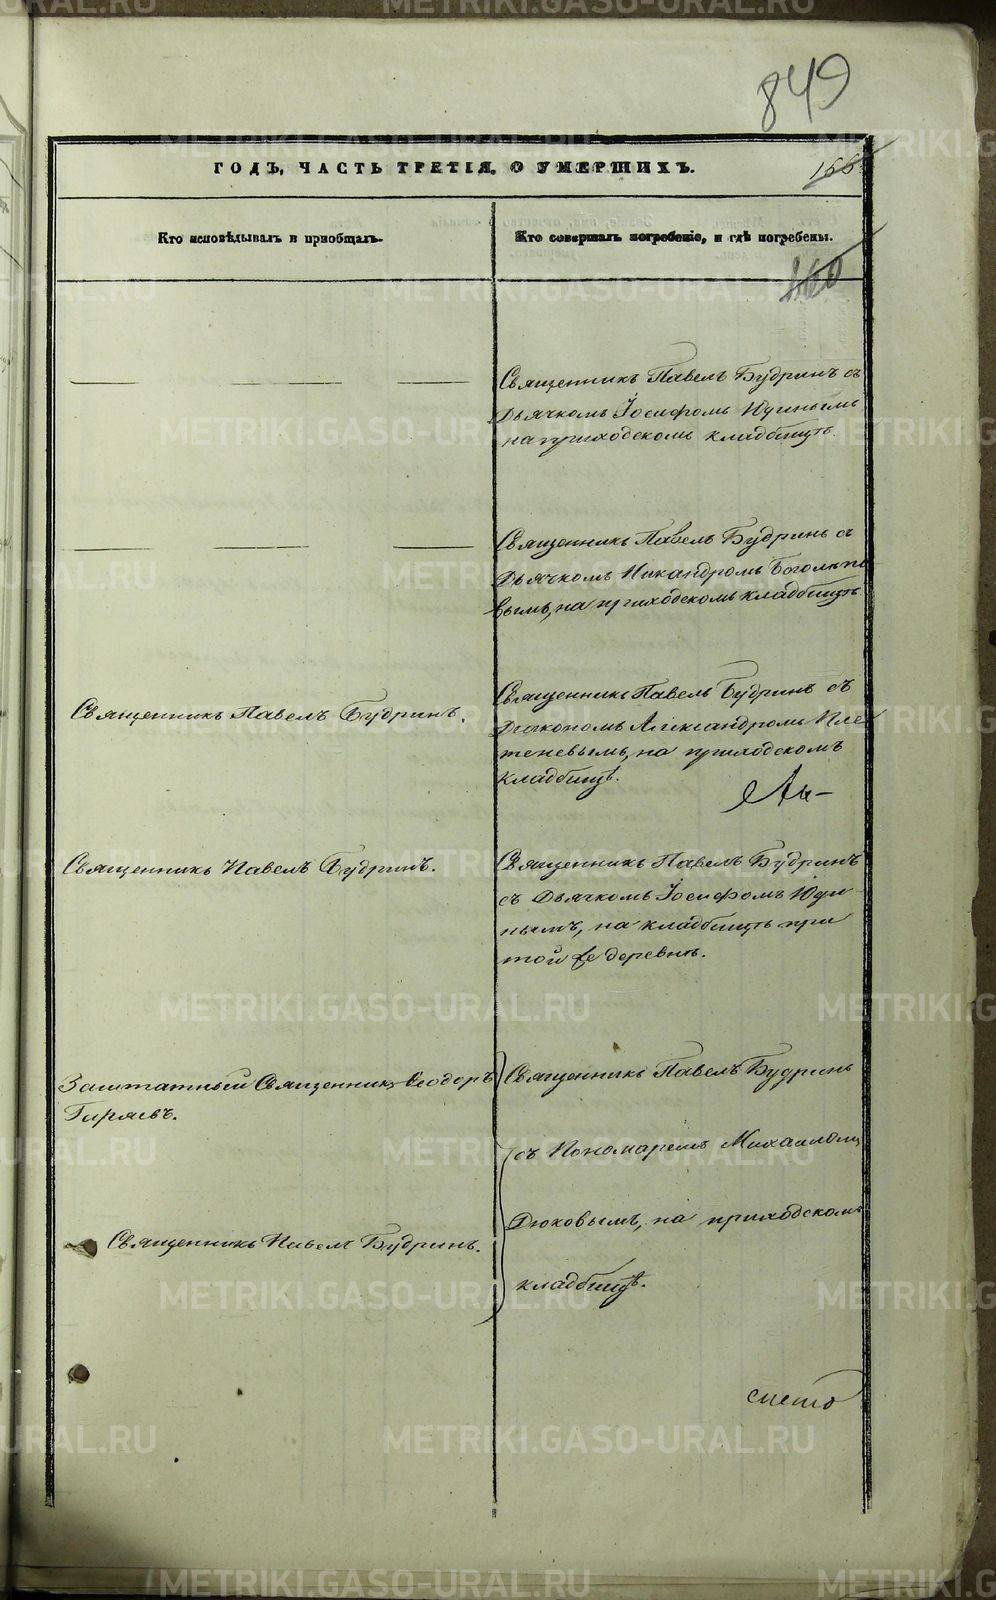 849
ГОДЪ, ЧАСТЬ ТРЕТІЯ, О УМЕРШИХЪ.
166
Кто исповѣдывалъ и пріобщалъ.
Кто совершалъ погребеніе, и гдѣ погребены.
160
Священникъ Павелъ Будринъ съ
Дьячкомъ Іосифомъ Юдинымъ
на приходскомъ кладбищѣ.
Священникъ Павелъ Будринъ съ
Дьячкомъ Никандромъ
вымъ, на приходскомъ кладбищѣ
Священникъ Павелъ Будринъ.
Священникъ Павелъ Будринъ съ
Діакономъ Александромъ Пле
теневымъ, на приходскомъ
кладбищѣ.
Священникъ Павелъ Будринъ.
Священникъ Павелъ Будринъ
съ Дьячкомъ Іосифомъ Юди-
нымъ, на кладбищѣ при
той же деревнѣ.
Заштатный Священникъ Ѳеодоръ
Гиряевъ.
Священникъ Павелъ Будринъ.
Священникъ Павелъ Будринъ
съ Пономаремъ Михаиломъ
Дюковымъ, на приходскомъ
кладбищѣ.
METRIKI.GASO-URAL.RU